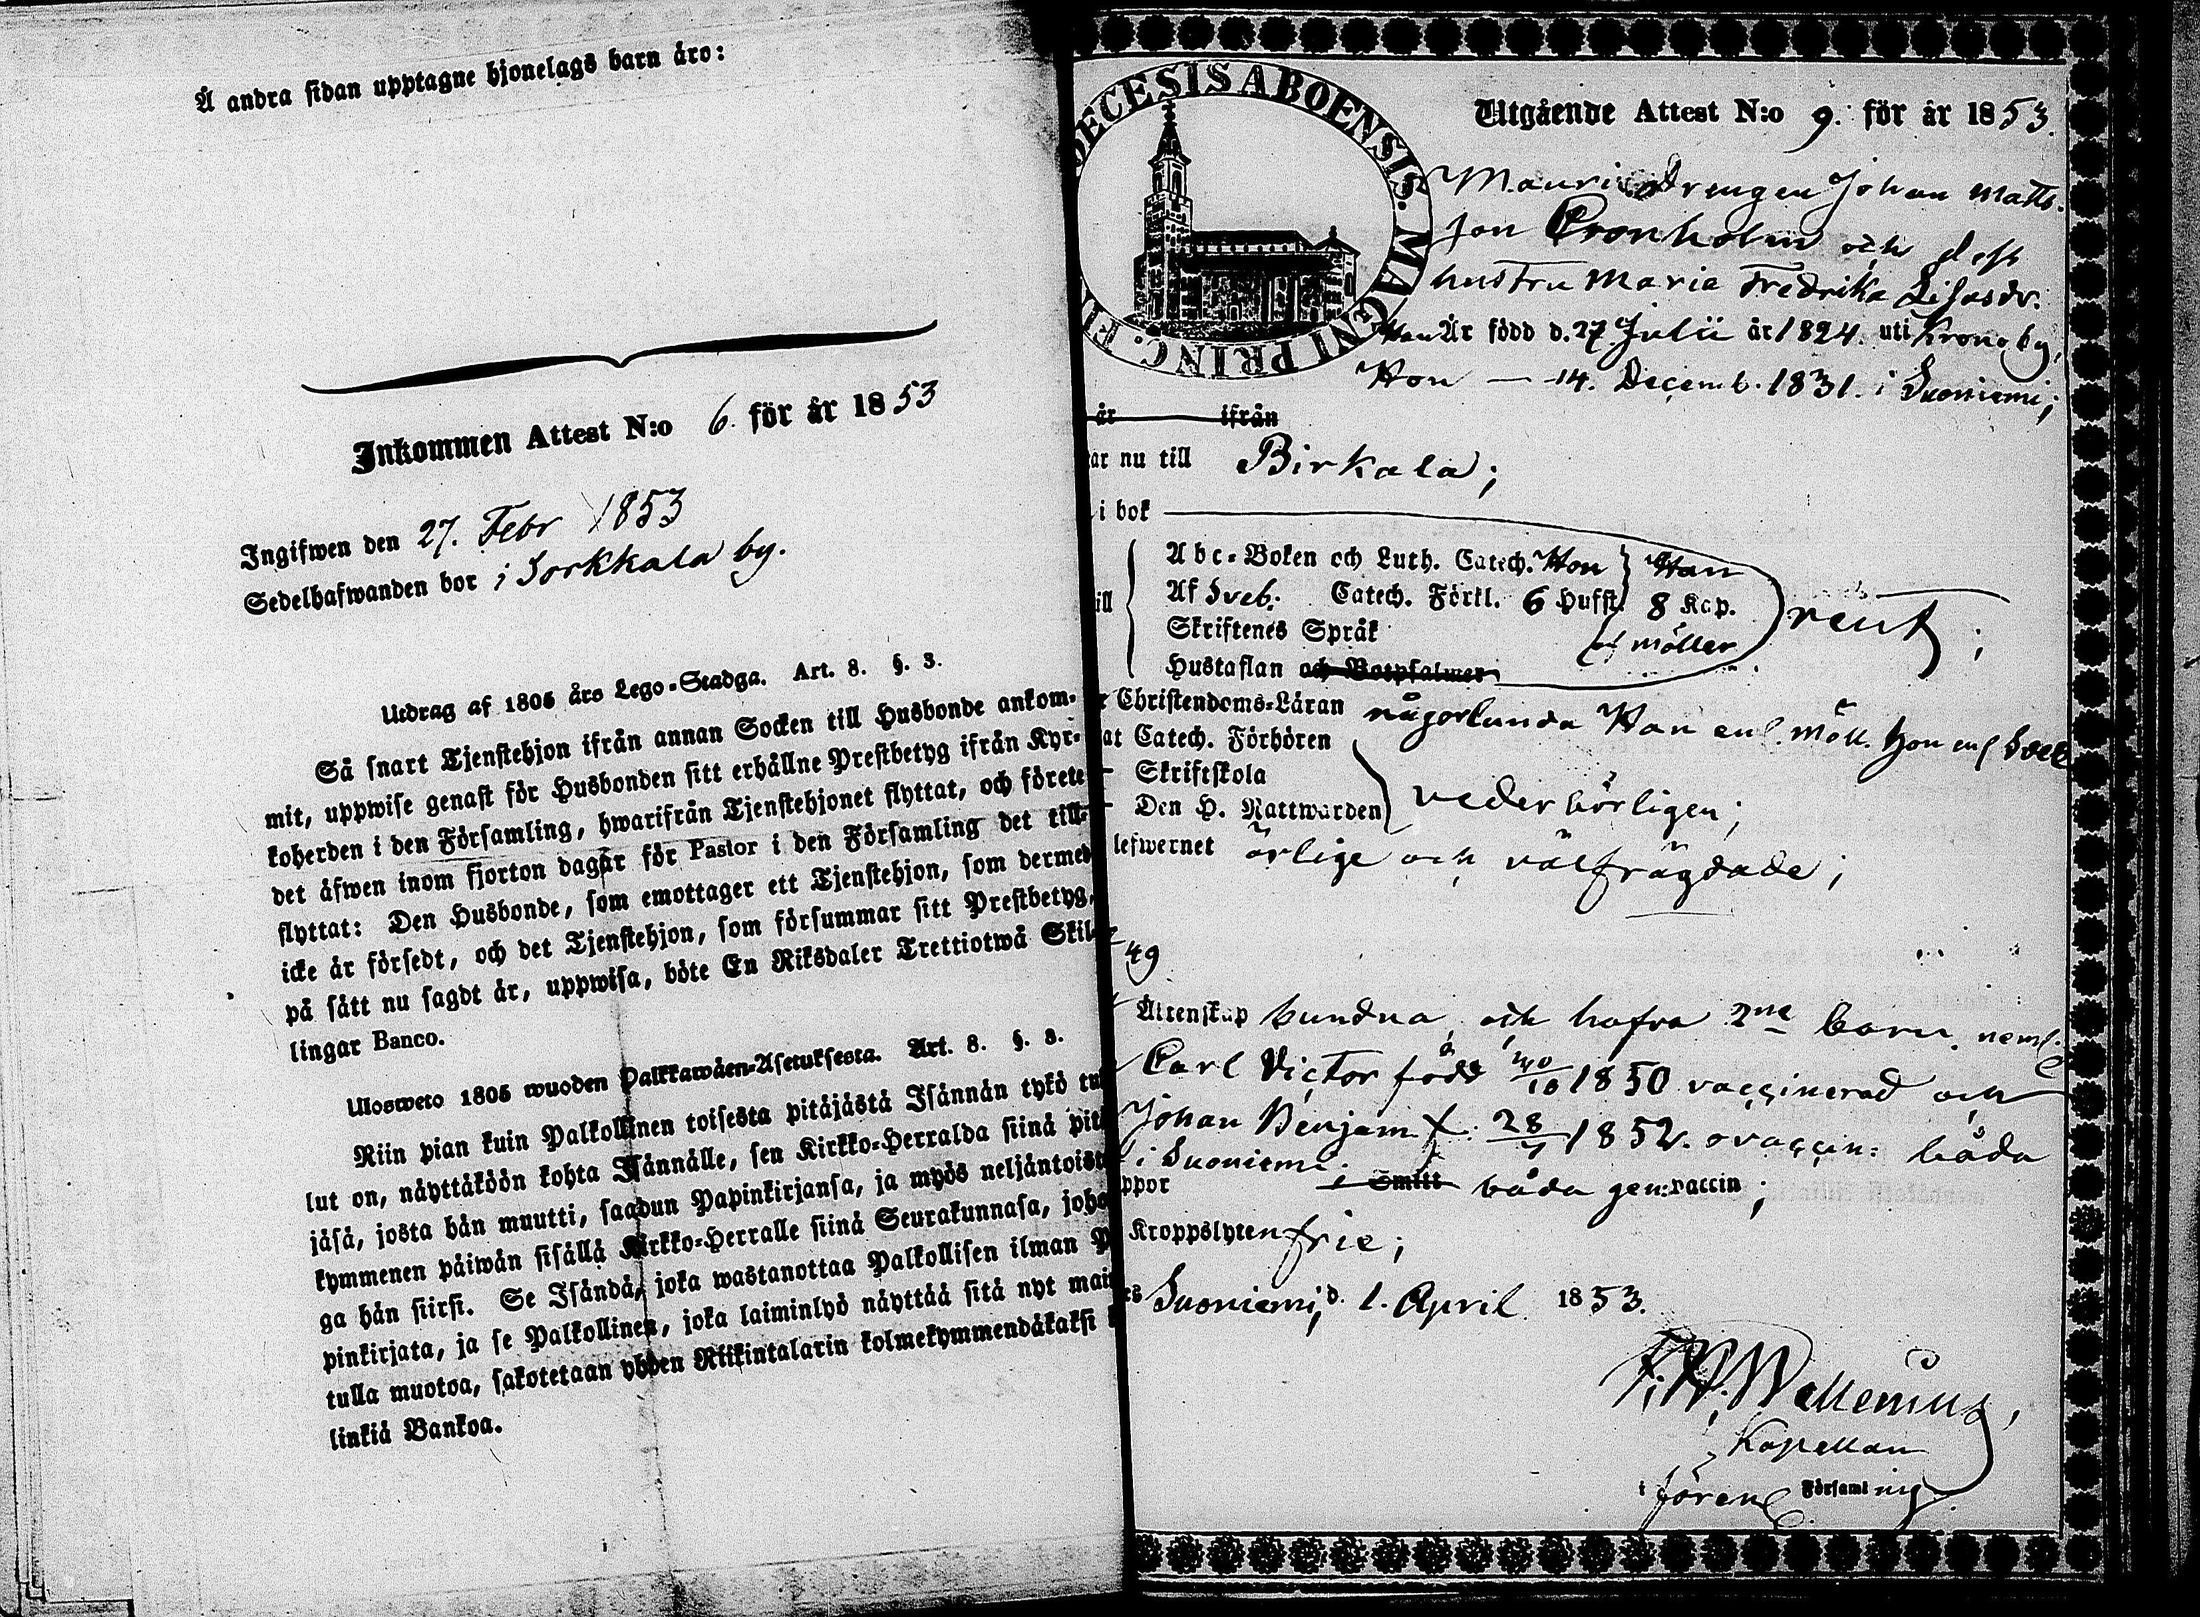 Å andra sidan upptagne hjonelags barn äro:
Inkommen Attest N:o 6. för år 1853
Ingifwen den 27. Febr 1853
Sedelhafwanden bor i Sorkkala by.
Utdrag af 1805 års Lego-Stadga. Art. 8. §. 3.
Så snart Tjenstehjon ifrån annan Socken till Husbonde ankom-
mit, uppwise genast för Husbonden sitt erhållne Prestbetyg ifrån Kyr-
koherden i den Församling, hwarifrån Tjenstehjonet flyttat, och förete
det äfwen inom fjorton dagar för Pastor i den Församling det till-
flyttat: Den Husbonde, som emottager ett Tjenstehjon, som dermed
icke är försedt, och det Tjenstehjon, som försummar sitt Prestbetyg,
på sätt nu sagdt är, uppwisa, böte En Riksdaler Trettiotwå Skil-
lingar Banco.
Ulosweto 1805 wuoden Palkkawäen-Asetuksesta. Art. 8. §. 3.
Niin pian kuin Palkollinen toisesta pitäjästä Isännän tykö tul
lut on, näyttäköön kohta Isännälle, sen Kirkko-Herralda siinä pitä
jäsä, josta hän muutti, saadun Papinkirjansa, ja myös neljäntoista
kymmenen päiwän sisällä Kirkko-Herralle siinä Seurakunnasa, joho
ga hän siirsi. Se Isändä, joka wastanottaa Palkollisen ilman P
pinkirjata, ja se Palkollinen, joka laiminlyö näyttää sitä nyt mai
tulla muotoa, sakotetaan yhden Riikintalarin kolmekymmendäkaksi
linkiä Bankoa.
DECESIS ABOENSIS. MAGNI PRINC. FI
Utgående Attest N:o 9. för år 1853.
Drengen Johan Matts-
son Cronholm och dess
hustru Maria Fredrika Lisasdr.
Han Är född d. 27 Julii år 1824. uti Kronoby,
Hon — 14. Decemb. 1831. i Suoniemi;
år ifrån
ar nu till Birkala;
i bok
Abc-Boken och Luth. Catech. Hon Han
ill Af Sveb. Catech. Förkl. 6 Hufst. 8 Kap. rent;
Skriftenes Språk af Möller
Hustaflan och Botpsalmer
Christendoms-Läran någorlunda Han enl. Möll. Hon enl Sveb
at Catech. Förhören
Skriftskola
Den H. Nattwarden vederbörligen;
lefwernet ärlige och välfrägdade;
49
Äktenskap bundna, och hafva 2ne barn neml.
Carl Victor född 1850 vaccinerad och
Johan Benjam. f. 28/7 1852. ovaccin: båda
i Suoniemi;
ppor i Smitt båda gen: vaccin;
Kroppslyten frie;
Suoniemi, d. 1. April 1853.
Wallenius,
Kapellan
i fören. Församl ing